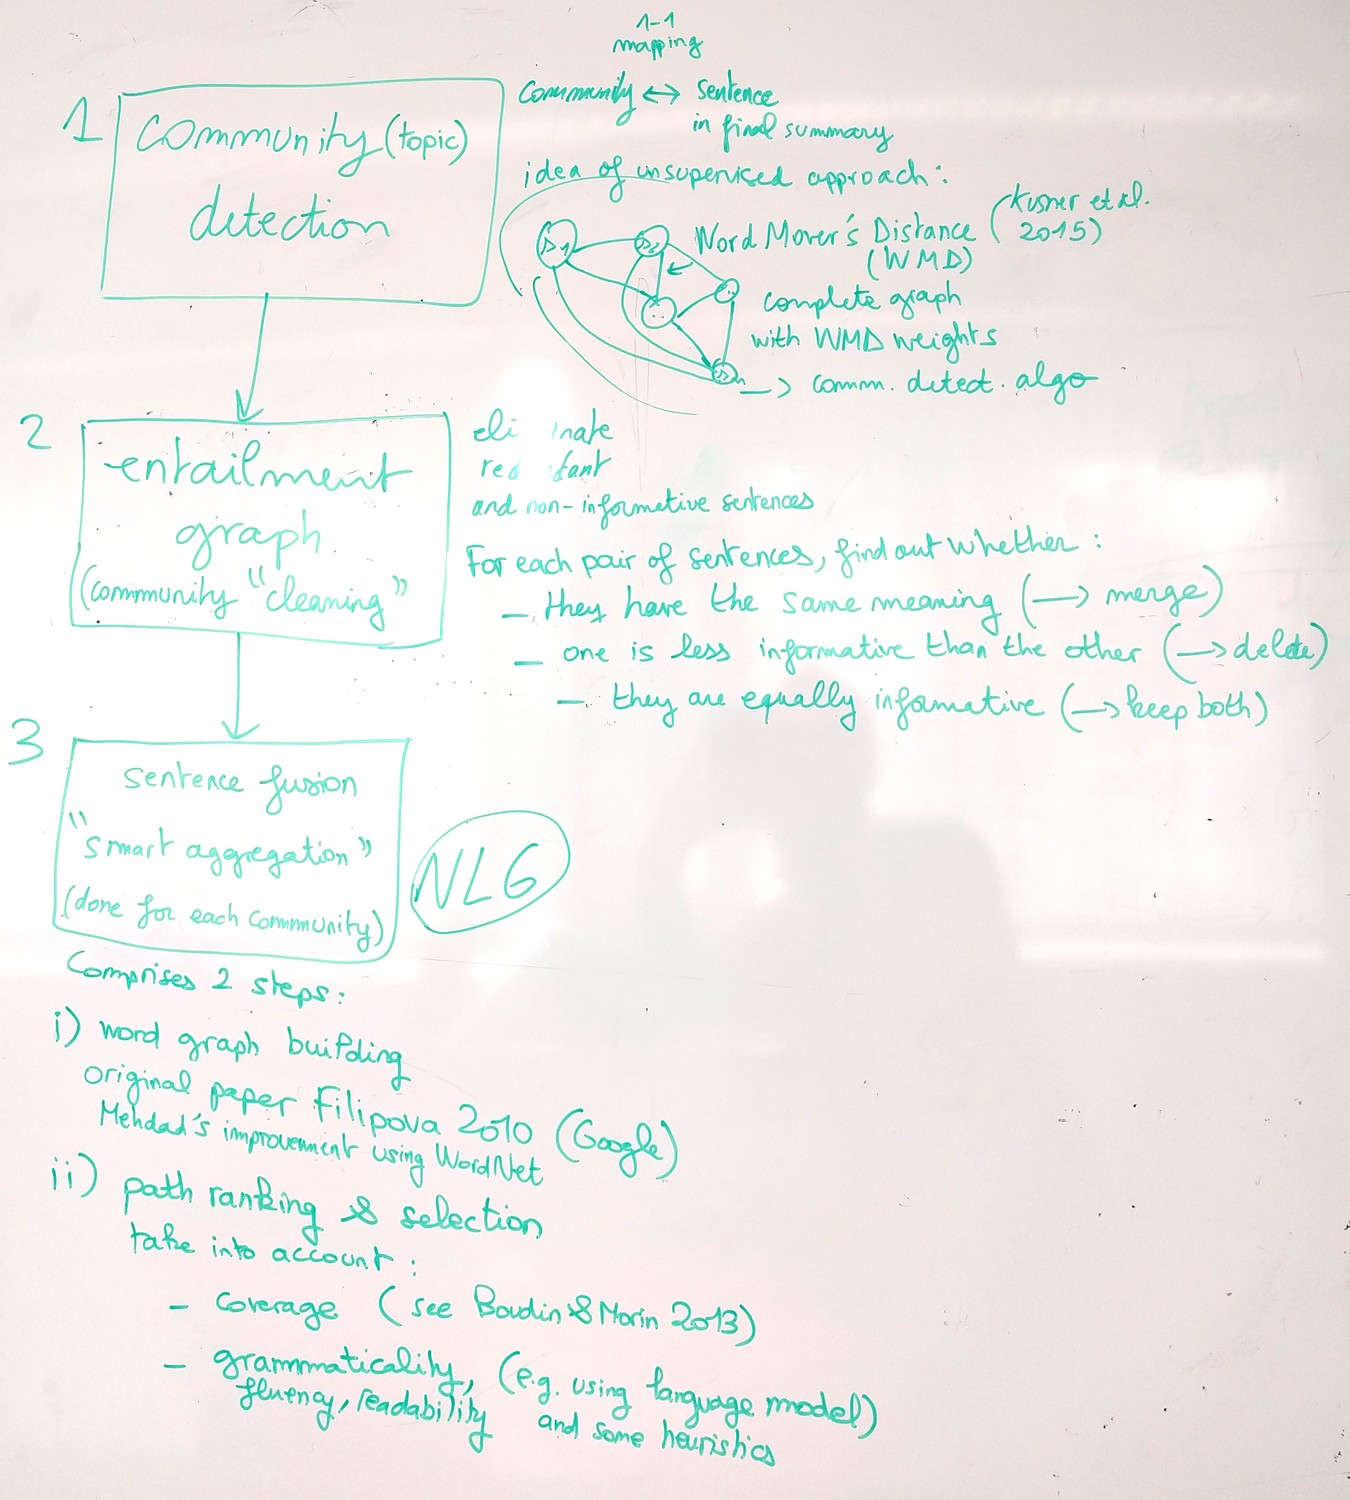 1-1
mapping
1
community (topic)
detection
community ↔ sentence
in final summary
idea of unsupervised approach:
Word Mover's Distance (Kusner et al. 2015)
(WMD)
complete graph
with WMD weights
→ comm. detect. algo
2
entailment
graph
(community "cleaning")
eli nate
re dant
and non-informative sentences
For each pair of sentences, find out whether:
- they have the same meaning (→ merge)
- one is less informative than the other (→ delete)
- they are equally informative (→ keep both)
3
sentence fusion
"smart aggregation"
(done for each community)
NLG
Comprises 2 steps:
i) word graph building
original paper Filipova 2010 (Google)
Mehdad's improvement using WordNet
ii) path ranking & selection
take into account:
- coverage (see Boudin & Morin 2013)
- grammaticality, (e.g. using language model)
fluency, readability and some heuristics